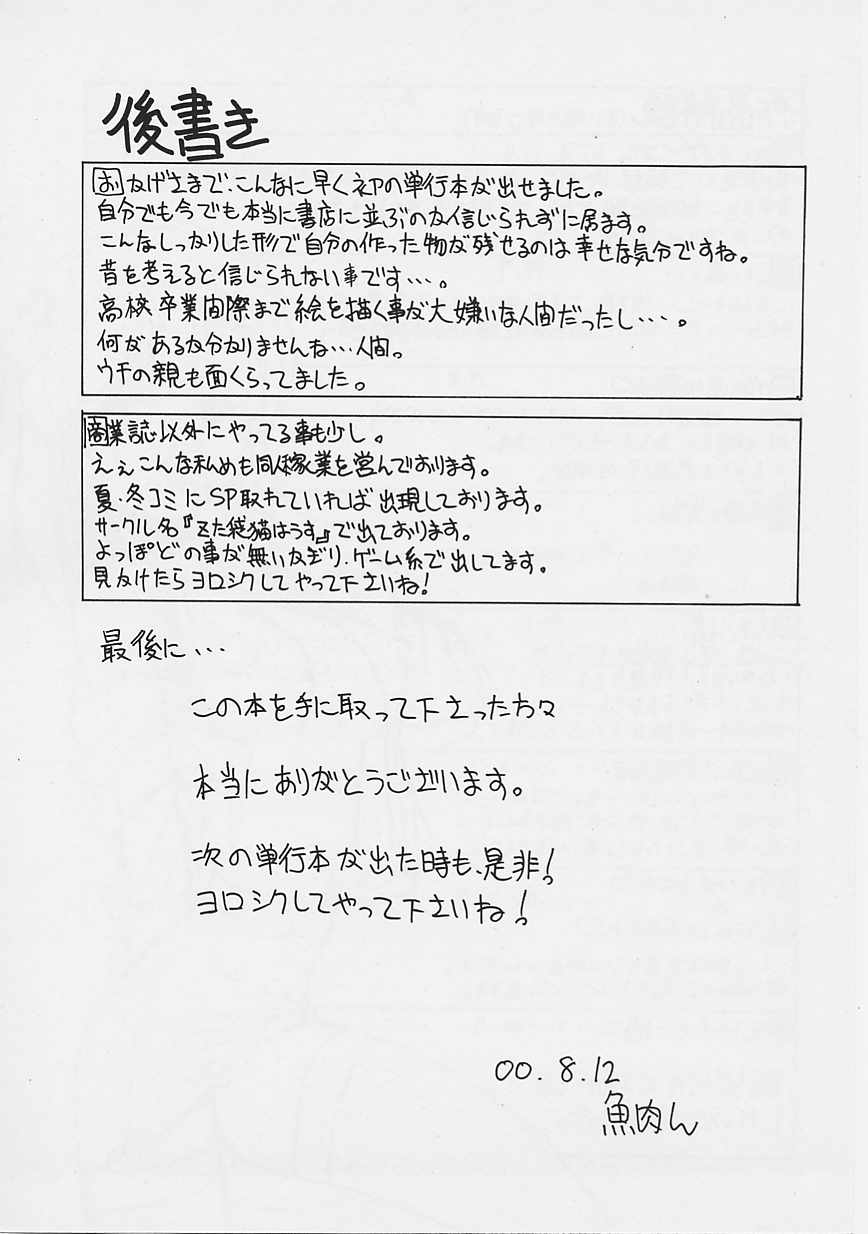 後書き
おかげさまで、こんなに早く初の単行本が出せました。
自分でも今でも本当に書店に並ぶのか信じられずに居ます。
こんなしっかりした形で自分の作った物が残せるのは幸せな気分ですね。
昔を考えると信じられない事です…。
高校卒業間際まで絵を描く事が大嫌いな人間だったし…。
何があるか分かりませんね…人間。
ウチの親も面くらってました。
商業誌以外にやってる事も少し。
ええこんな私めも同人稼業を営んでおります。
夏・冬コミにSP取れていれば出現しております。
サークル名『ずた袋猫はうす』で出ております。
よっぽどの事が無いかぎり、ゲーム系で出してます。
見かけたらヨロシクしてやって下さいね!
最後に…
この本を手に取って下さった方々
本当にありがとうございます。
次の単行本が出た時も、是非!
ヨロシクしてやって下さいね!
00.8.12
魚肉ん